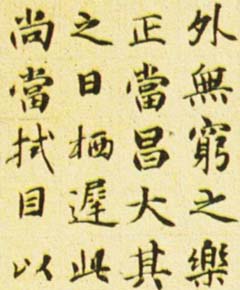 外無窮之樂
正當昌大其
之日栖遲此
尚當拭目以